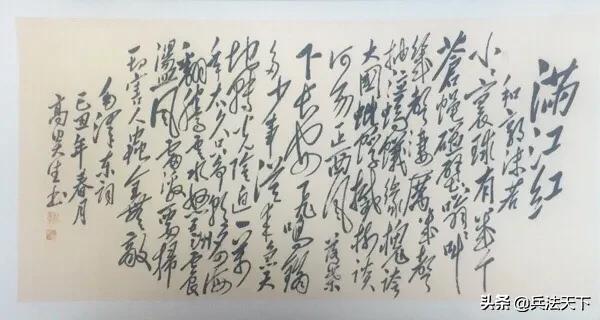 满江红
和郭沫若
小小寰球有几个
苍蝇碰壁嗡嗡叫
几声凄厉几声
抽泣蚂蚁缘槐夸
大国蚍蜉撼树谈
何易正西风落叶
下长安飞鸣镝
多少事从来急天
地转光阴迫一万
年太久只争朝夕四海
翻腾云水怒五洲震
荡风雷激要扫
一切害人虫全无敌
毛泽东词
己丑年春月
高生书
头条 @兵法天下